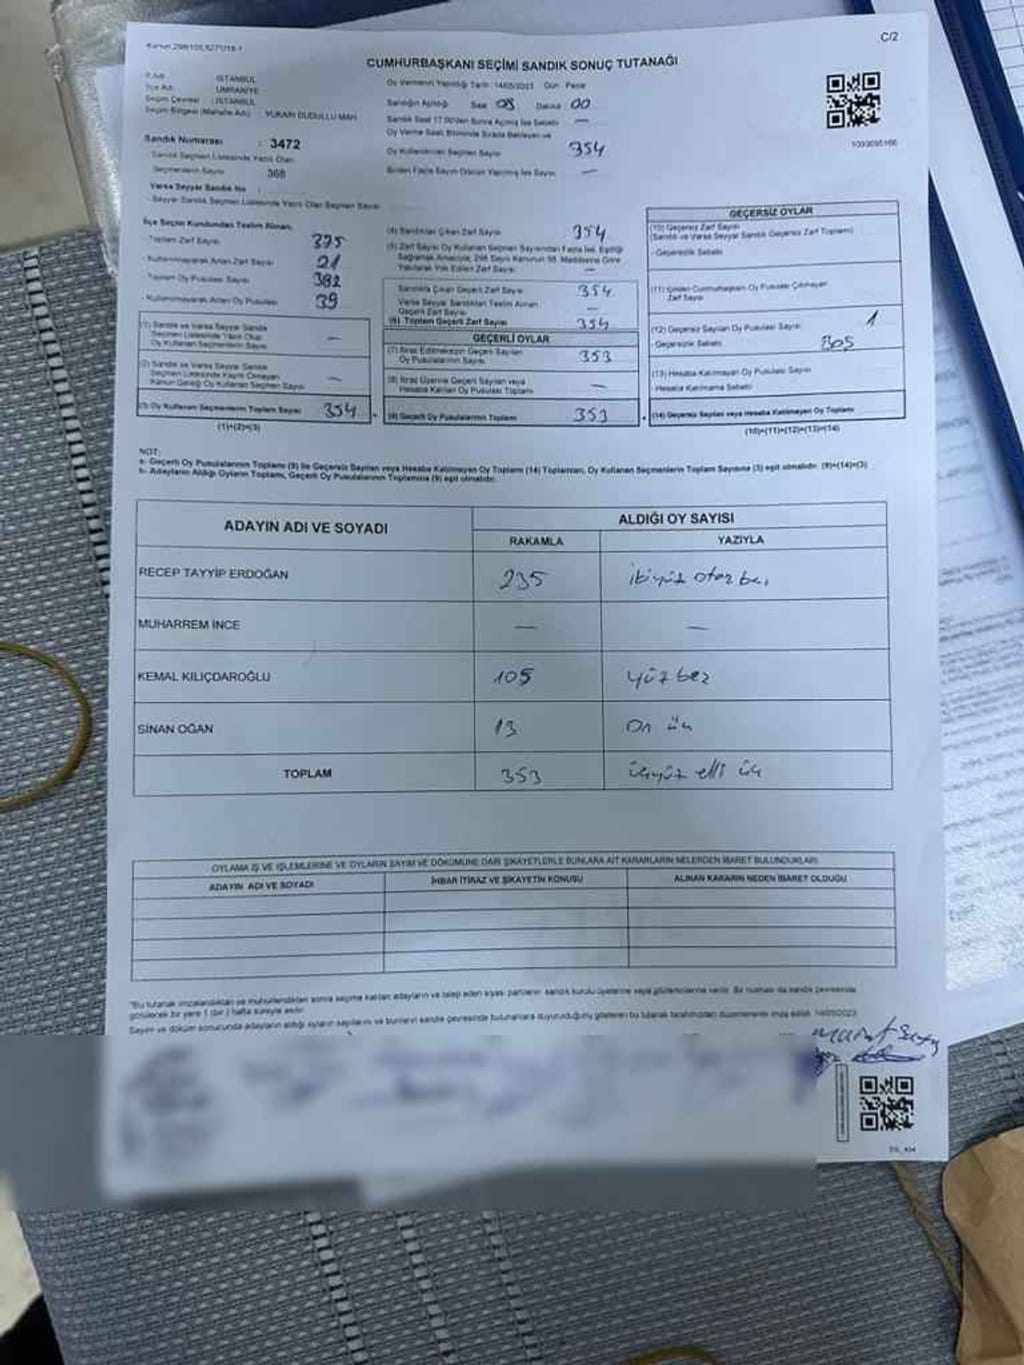 Kanun 298/105,6271/18-1
C/2
CUMHURBAŞKANI SEÇİMİ SANDIK SONUÇ TUTANAĞI
İl Adı : İSTANBUL
İlçe Adı : ÜMRANİYE
Seçim Çevresi : İSTANBUL
Seçim Bölgesi (Mahalle Adı) : YUKARI DUDULLU MAH.
Sandık Numarası : 3472
Sandık Seçmen Listesinde Yazılı Olan
Seçmenlerin Sayısı : 368
Varsa Seyyar Sandık No :
- Seyyar Sandık Seçmen Listesinde Yazılı Olan Seçmen Sayısı :
Oy Vermenin Yapıldığı Tarih : 14/05/2023 Gün : Pazar
Sandığın Açıldığı Saat 08 Dakika 00
Sandık Saat 17.00'den Sonra Açılmış İse Sebebi —
Oy Verme Saati Bitiminde Sırada Bekleyen ve
Oy Kullandırılan Seçmen Sayısı 354
—
İlçe Seçim Kurulundan Teslim Alınan:
- Toplam Zarf Sayısı 375
- Kullanılmayarak Artan Zarf Sayısı 21
- Toplam Oy Pusulası Sayısı 382
- Kullanılmayarak Artan Oy Pusulası 39
(1) Sandık ve Varsa Seyyar Sandık
Seçmen Listesinde Yazılı Olup
Oy Kullanan Seçmenlerin Sayısı —
(2) Sandık ve Varsa Seyyar Sandık
Seçmen Listesinde Kaydı Olmayan
Kanun Gereği Oy Kullanan Seçmen Sayısı —
(3) Oy Kullanan Seçmenlerin Toplam Sayısı 354
(1)+(2)=(3)
(4) Sandıktan Çıkan Zarf Sayısı 354
(5) Zarf Sayısı Oy Kullanan Seçmen Sayısından Fazla İse, Eşitliği
Sağlamak Amacıyla, 298 Sayılı Kanunun 98. Maddesine Göre
Yakılarak Yok Edilen Zarf Sayısı —
Sandıkta Çıkan Geçerli Zarf Sayısı 354
Varsa Seyyar Sandıktan Teslim Alınan
Geçerli Zarf Sayısı —
(6) Toplam Geçerli Zarf Sayısı 354
GEÇERLİ OYLAR
(7) İtiraz Edilmeksizin Geçerli Sayılan
Oy Pusulalarının Sayısı 353
(8) İtiraz Üzerine Geçerli Sayılan veya
Hesaba Katılan Oy Pusulası Toplamı —
(9) Geçerli Oy Pusulalarının Toplamı 353
GEÇERSİZ OYLAR
(10) Geçersiz Zarf Sayısı
(Sandık ve Varsa Seyyar Sandık Geçersiz Zarf Toplamı)
- Geçersizlik Sebebi
(11) İçinden Cumhurbaşkanı Oy Pusulası Çıkmayan
Zarf Sayısı
(12) Geçersiz Sayılan Oy Pusulası Sayısı 1
- Geçersizlik Sebebi
(13) Hesaba Katılmayan Oy Pusulası Sayısı
- Hesaba Katılmama Sebebi
(14) Geçersiz Sayılan veya Hesaba Katılmayan Oy Toplamı
(10)+(11)+(12)+(13)=(14)
NOT:
a- Geçerli Oy Pusulalarının Toplamı (9) ile Geçersiz Sayılan veya Hesaba Katılmayan Oy Toplamı (14) Toplamları, Oy Kullanan Seçmenlerin Toplam Sayısına (3) eşit olmalıdır. (9)+(14)=(3)
b- Adayların Aldığı Oyların Toplamı, Geçerli Oy Pusulalarının Toplamına (9) eşit olmalıdır.
ADAYIN ADI VE SOYADI
ALDIĞI OY SAYISI
RAKAMLA YAZIYLA
RECEP TAYYİP ERDOĞAN 235 ikiyüz otuz beş
MUHARREM İNCE — —
KEMAL KILIÇDAROĞLU 105 yüz beş
SİNAN OĞAN 13 on üç
TOPLAM 353 üçyüz elli üç
OYLAMA İŞ VE İŞLEMLERİNE VE OYLARIN SAYIM VE DÖKÜMÜNE DAİR ŞİKAYETLERLE BUNLARA AİT KARARLARIN NELERDEN İBARET BULUNDUKLARI
ADAYIN ADI VE SOYADI
İHBAR İTİRAZ VE ŞİKAYETİN KONUSU
ALINAN KARARIN NEDEN İBARET OLDUĞU
"Bu tutanak imzalandıktan ve mühürlendikten sonra seçime katılan adayların ve talep eden siyasi partilerin sandık kurulu üyelerine veya gözlemcilerine verilir. Bir nüshası da sandık çevresinde
görülecek bir yere 1 (bir) hafta süreyle asılır.
Sayım ve döküm sonucunda adayların aldığı oyların sayılarını ve bunların sandık çevresinde bulunanlara duyurulduğunu gösteren bu tutanak tarafımızdan düzenlenerek imza edildi. 14/05/2023